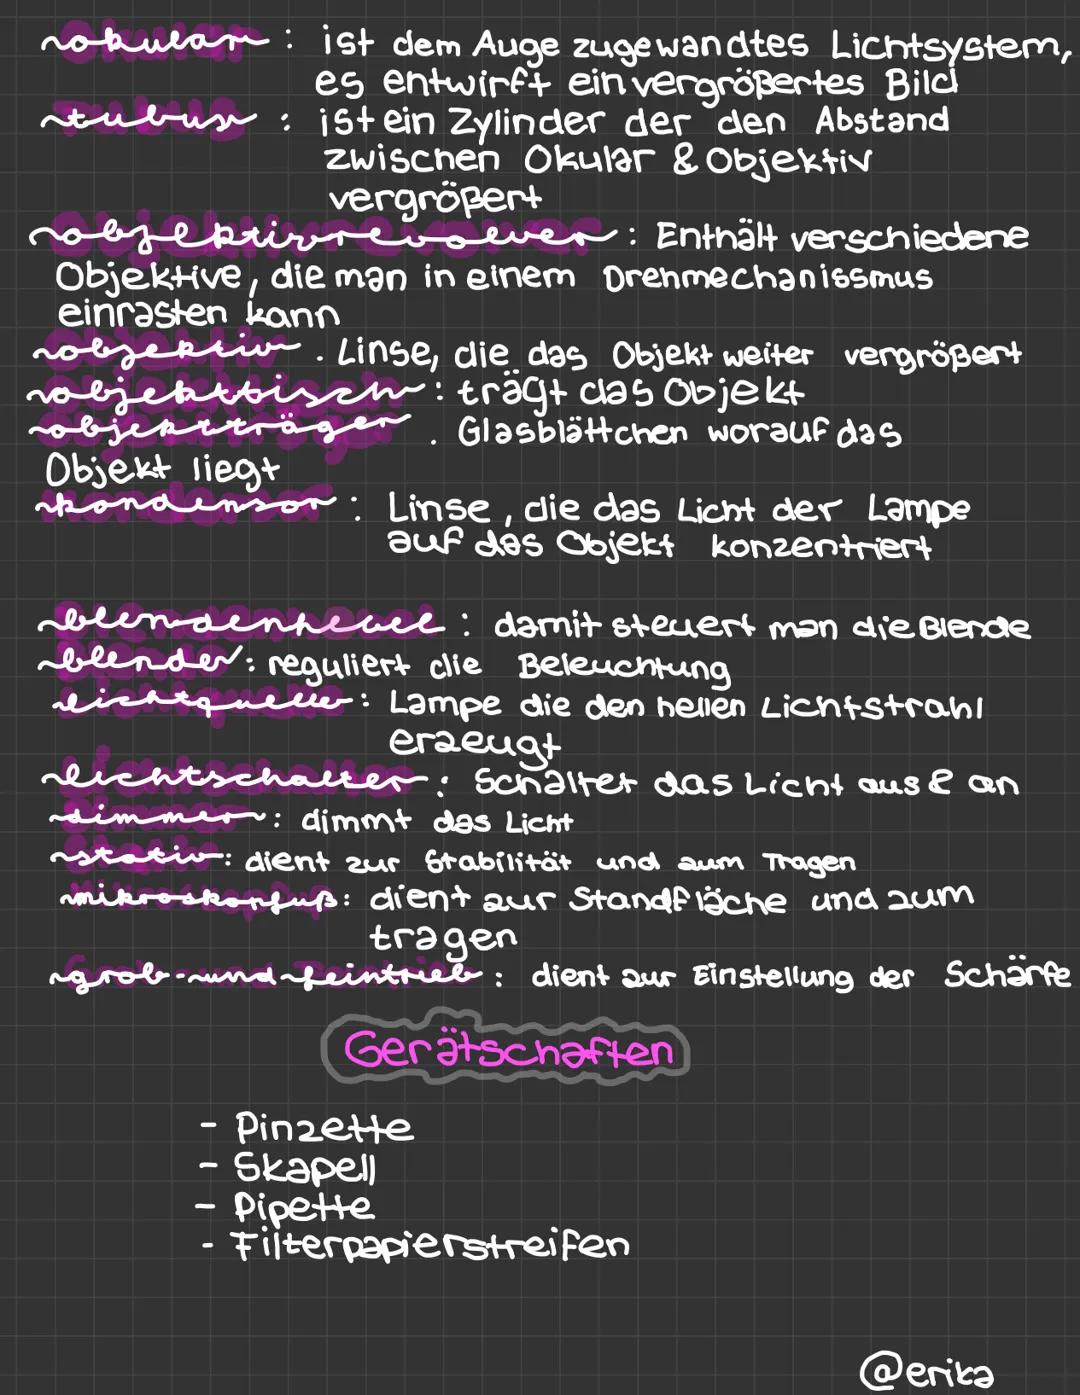 okular : ist dem Auge zugewandtes Lichtsystem,
es entwirft ein vergrößertes Bild
tubus : ist ein Zylinder der den Abstand
zwischen Okular & Objektiv
vergrößert
objektivrevolver : Enthält verschiedene
Objektive, die man in einem Drehmechanissmus
einrasten kann
objektiv . Linse, die das Objekt weiter vergrößert
objekttisch : trägt das Objekt
objektträger . Glasblättchen worauf das
Objekt liegt
kondensor : Linse, die das Licht der Lampe
auf das Objekt konzentriert
blendenhebel : damit steuert man die Blende
blende : reguliert die Beleuchtung
lichtquelle : Lampe die den hellen Lichtstrahl
erzeugt
lichtschalter : Schaltet das Licht aus & an
dimmer : dimmt das Licht
stativ : dient zur Stabilität und zum Tragen
mikroskopfuß : dient zur Standfläche und zum
tragen
grob-und feintrieb : dient zur Einstellung der Schärfe
Gerätschaften
- Pinzette
- Skapell
- Pipette
- Filterpapierstreifen
@erika